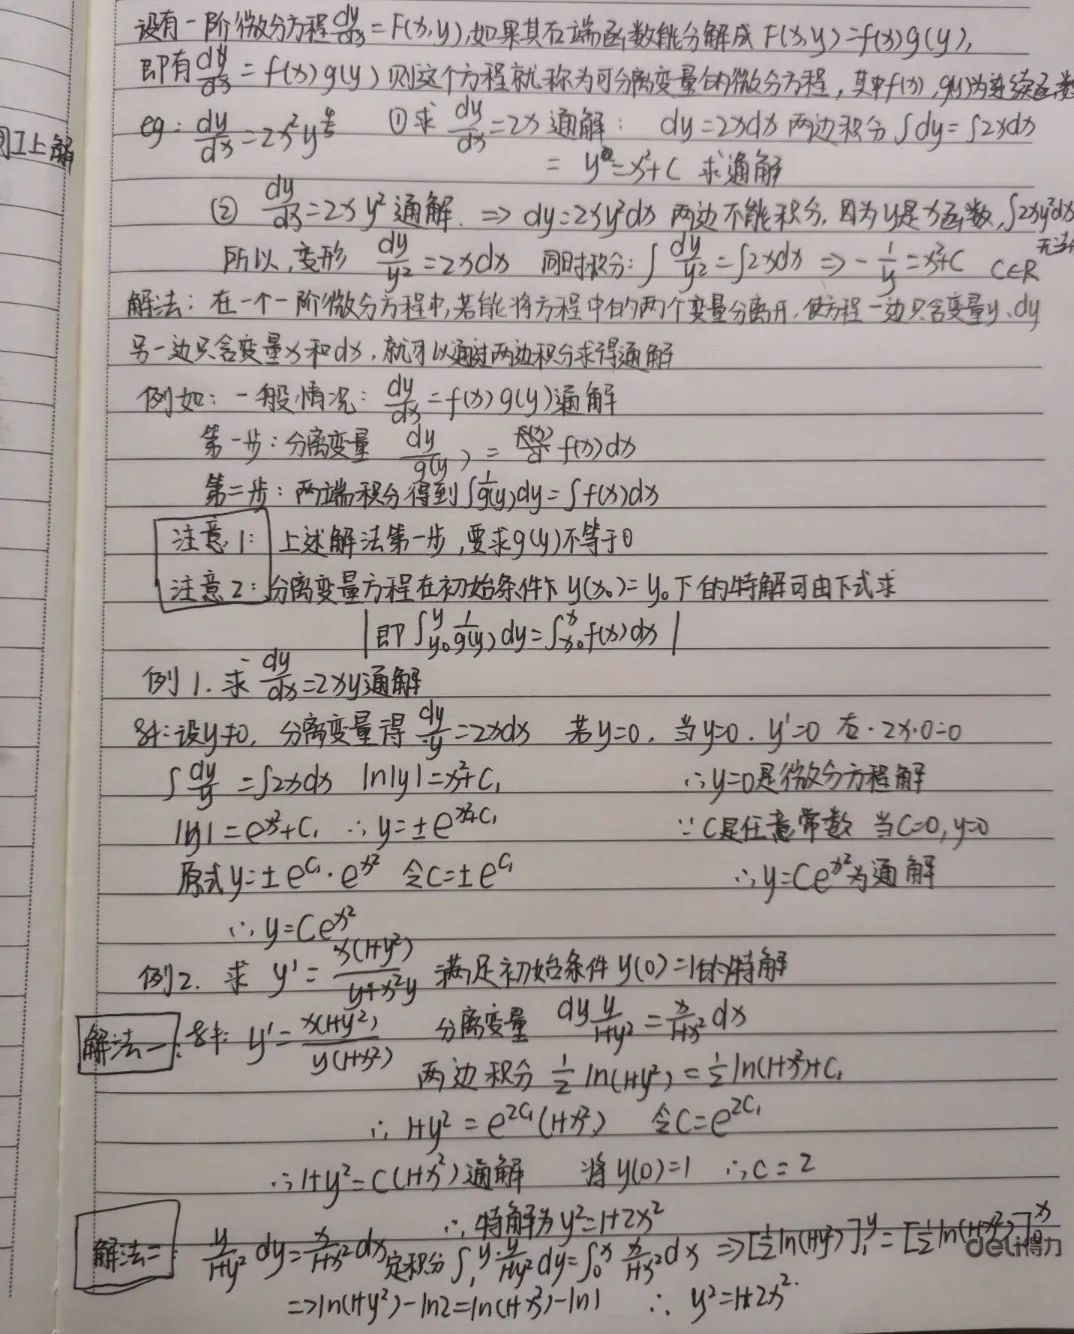 设有一阶微分方程 dy/dx = F(x,y),如果其右端函数能分解成 F(x,y)=f(x)g(y),
即有 dy/dx = f(x)g(y) 则这个方程就称为可分离变量的微分方程,其中f(x),g(y)为连续函数
eg: dy/dx = 2x²y ①求 dy/dx = 2x 通解: dy=2xdx 两边积分 ∫dy=∫2xdx
上解
= y=x²+C 求通解
② dy/dx = 2xy² 通解. ⇒ dy=2xy²dx 两边不能积分,因为y是x函数,∫2xy²dx
无法
所以,变形 dy/y² = 2xdx 同时积分: ∫dy/y² = ∫2xdx ⇒ -1/y = x²+C C∈R
解法:在一个一阶微分方程中,若能将方程中的两个变量分离开,使方程一边只含变量y、dy
另一边只含变量x和dx,就可以通过两边积分求得通解
例如:一般情况: dy/dx = f(x)g(y)通解
第一步:分离变量 dy/g(y) = f(x)dx
第二步:两端积分得到∫1/g(y) dy=∫f(x)dx
注意1: 上述解法第一步,要求g(y)不等于0
注意2: 分离变量方程在初始条件下y(x₀)=y₀下的特解可由下式求
|即 ∫_{y₀}^{y} 1/g(y) dy = ∫_{x₀}^{x} f(x)dx|
例1. 求 dy/dx = 2xy通解
解:设y≠0, 分离变量得 dy/y = 2xdx 若y=0, 当y=0. y'=0 右·2x·0=0
∫dy/y = ∫2xdx ln|y|=x²+C₁ ∴y=0是微分方程解
|y|=e^{x²+C₁} ∴y=±e^{x²+C₁} ∵C是任意常数 当C=0,y=0
原式y=±e^{C₁}·e^{x²} 令C=±e^{C₁} ∴y=Ce^{x²}为通解
∴y=Ce^{x²}
例2. 求 y' = x(1+y²)/(y+x²y) 满足初始条件y(0)=1的特解
解法一: 解: y' = x(1+y²)/y(1+x²) 分离变量 dy y/(1+y²) = x/(1+x²) dx
两边积分 1/2 ln(1+y²) = 1/2 ln(1+x²)+C₁
∴ 1+y² = e^{2C₁}(1+x²) 令C=e^{2C₁}
∴1+y²=C(1+x²)通解 将y(0)=1 ∴C=2
∴特解为y²=1+2x²
解法二: y/(1+y²) dy = x/(1+x²) dx 定积分 ∫_1^y y/(1+y²) dy = ∫_0^x x/(1+x²) dx ⇒ [1/2 ln(1+y²)]_1^y = [1/2 ln(1+x²)]_0^x
deli得力
⇒ln(1+y²)-ln2=ln(1+x²)-ln1 ∴ y²=1+2x².